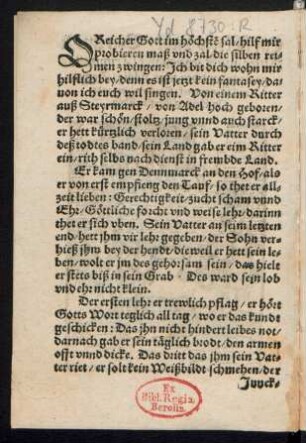 Yd 8730 R
O Reicher Gott im höchstē sal / hilf mir
probieren maß vnd zal / die silben rei-
men zwingen: Ich bit dich wohn mir
hilflich bey / denn es ist jetzt kein fantasey / da-
uon ich euch wil singen. Von einem Ritter
auß Steyrmarck / von Adel hoch geboren /
der war schön / stoltz / jung vnnd auch starck /
er hett kürtzlich verloren / sein Vatter durch
deß todtes band / sein Land gab er eim Ritter
ein / rith selbs nach dienst in frembde Land.
Er kam gen Dennmarck an den Hof / als
er von erst empfieng den Tauf / so thet er all-
zeit lieben: Gerechtigkeit / zucht scham vnnd
Ehr / Göttliche forcht vnd weise lehr / darinn
thet er sich vben. Sein Vatter an seim letzten
end / hett jhm vir lehr gegeben / der Sohn ver-
hieß jhms bey der hendt / die weil er hett sein le-
ben / wolt er jm des gehorsam sein / das hielt
er stets biß in sein Grab. Des ward sein lob
vnd ehr nicht klein.
Der ersten lehr er trewlich pflag / er hört
Gotts Wort teglich all tag / wo er das kundt
geschicken: Das jhn nicht hindert leibes not /
darnach gab er sein täglich brodt / den armen
offt vnnd dicke. Das drit das jhm sein Vat-
ter riet / er solt kein Weißbildt schmehen / der
Juuck-
Ex
Bibl. Regia
Berolin.